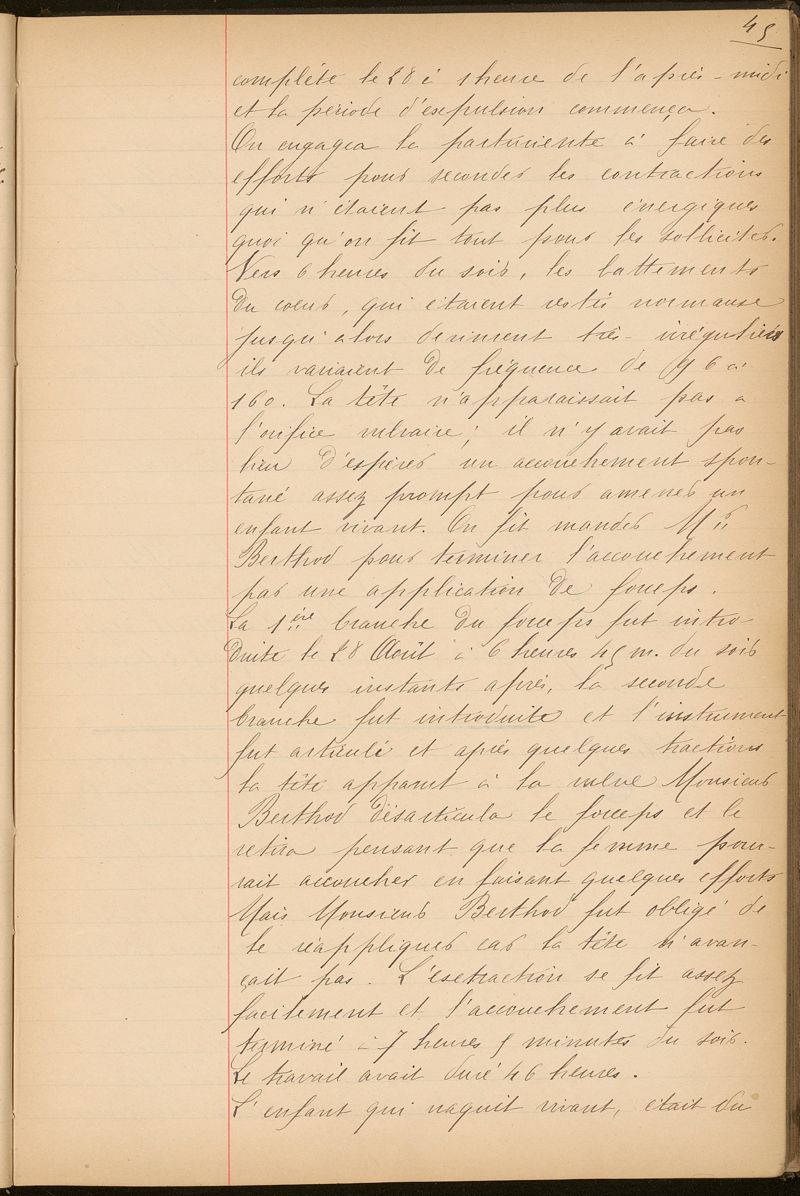 45
complète le 28 à 1 heure de l'après-midi
et la période d'expulsion commença.
On engagea la parturiente à faire des
efforts pour seconder les contractions
qui n'étaient pas plus énergiques
quoi qu'on fit tout pour les solliciter.
Vers 6 heures du soir, les battements
du cœur, qui étaient restés normaux
jusqu'alors devinrent très-irréguliers
ils variaient de fréquence de 96 à
160. La tête n'apparaissait pas à
l'orifice vulvaire; il n'y avait pas
lieu d'espérer un accouchement spon-
tané assez prompt pour amener un
enfant vivant. On fit mander Mr
Berthod pour terminer l'accouchement
par une application de forceps.
La 1ère branche du forceps fut intro
duite le 28 Août à 6 heures 45 m. du soir
quelques instants après, la seconde
branche fut introduite et l'instrument
fut articulé et après quelques tractions
la tête apparut à la vulve Monsieur
Berthod désarticula le forceps et le
retira pensant que la femme pour-
rait accoucher en faisant quelques efforts
Mais Monsieur Berthod fut obligé de
le réappliquer car la tête n'avan-
çait pas. L'extraction se fit assez
facilement et l'accouchement fut
terminé à 7 heures 5 minutes du soir.
Le travail avait duré 46 heures.
L'enfant qui naquit vivant, était du